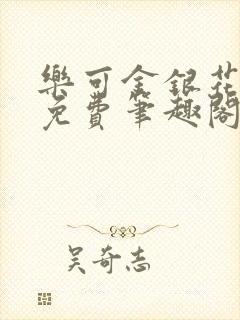 樂可金銀花
免費筆趣閣
吳奇志